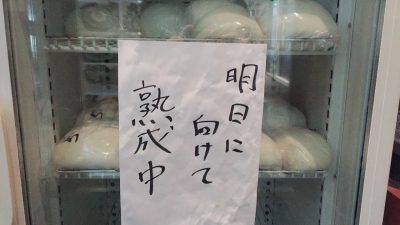 明日に
向けて
熟成中